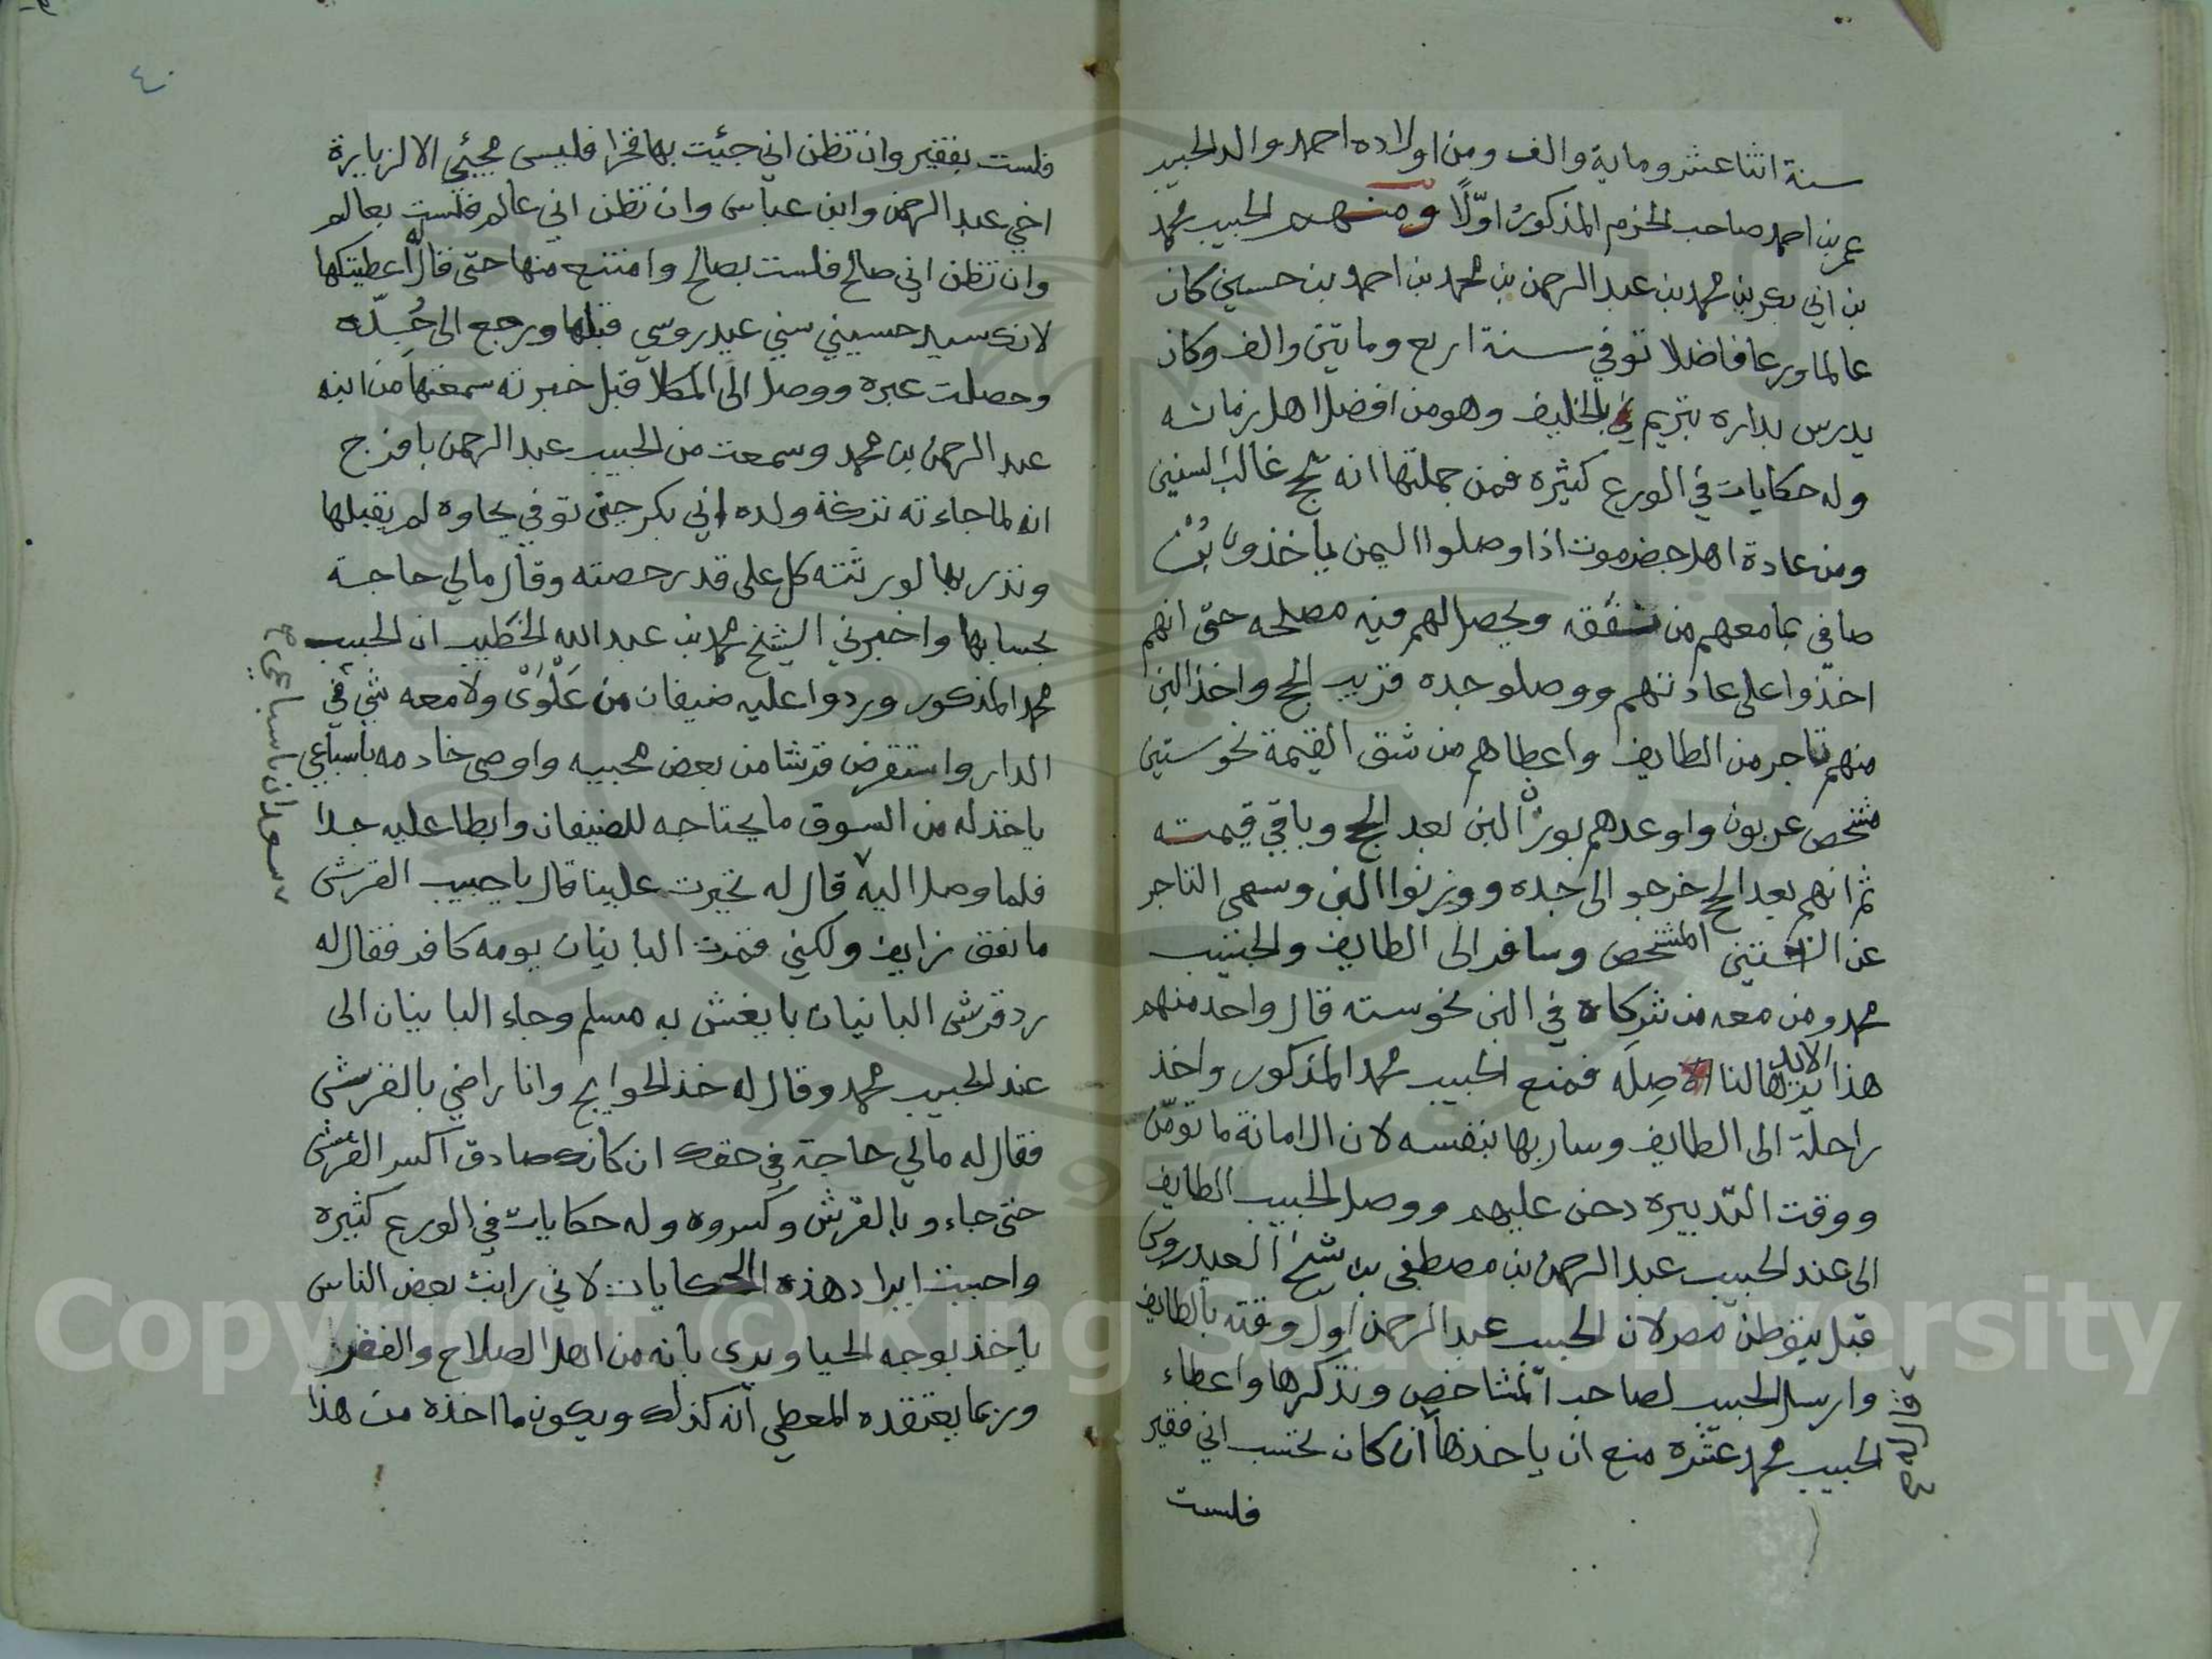 سنة اثنا عشر وماية والف ومن اولاده احمد والد الحبيب
عمر بن احمد صاحب الخزم المذكور اوّلًا ومنهم الحبيب محمد
بن ابي بكر بن محمد بن عبد الرحمن بن محمد بن احمد بن حسين كان
عالما ورعا فاضلا توفي سنة اربع ومايتين والف وكان
يدرس بداره بتريم بالخليف وهو من افضل اهل زمانه
وله حكايات في الورع كثيره فمن جملتها انه حج غالب السنين
ومن عادة اهل حضرموت اذا وصلوا اليمن ياخذون بُنْ
صافي بما معهم من نفقه ويحصل لهم فيه مصلحه حتى انهم
اخذوا على عادتهم ووصلو جده قريب الحج واخذ البن
منهم تاجر من الطايف واعطاهم من شق القيمة نحو ستين
مشخص عربون واوعدهم بوزن البن بعد الحج وباقي قيمته
ثم انهم بعد الحج خرجو الى جده ووزنوا البن وسهى التاجر
عن الستين المشخص وسافر الى الطايف والحبيب
محمد ومن معه من شركاه في البن نحو سته قال واحد منهم
هذا الابد يردها لنا صِلَه فمنع الحبيب محمد المذكور واخذ
راحلة الى الطايف وسار بها بنفسه لان الامانة ما تومّن
ووقت التدبيره دحن عليهم ووصل الحبيب الطايف
الى عند الحبيب عبد الرحمن بن مصطفى بن شيخ العيدروس
قبل يتوطن مصر لان الحبيب عبد الرحمن اول وقته بالطايف
وارسل الحبيب لصاحب المشاخص وتذكرها واعطاء
الحبيب محمد عشره منع ان ياخذها ان كان تحسب اني فقير
وقال له
فلست
٤٠
فلست بفقير وان تظن اني جئيت بها فخرا فليس مجيئي الا لزيارة
اخي عبد الرحمن وابن عباس وان تظن اني عالم فلست بعالم
وان تظن اني صالح فلست بصالح وامتنع منها حتى قال اعطيتكها
لانك سيد حسيني سني عيدروسي قبلها ورجع الى جُدّه
وحصلت عبره ووصل الى المكلا قبل خبرته سمعتها من ابنه
عبد الرحمن بن محمد وسمعت من الحبيب عبد الرحمن بافرج
انه لما جاءته تركة ولده ابي بكر حين توفي بجاوه لم يقبلها
ونذر بها لورثته كل على قدر حصته وقال مالي حاجة
بحسابها واخبرني الشيخ محمد بن عبد الله الخطيب ان الحبيب
محمد المذكور وردوا عليه ضيفان من عَلْوَىْ ولا معه شي في
الدار واستقرض قرشا من بعض محبيه واوصى خادمه باسباعي
ياخذ له من السوق ما يحتاجه للضيفان وابطا عليه جدا
فلما وصل اليه قال له تخيرت علينا قال يا حبيب القرش
ما نفق زايف ولكني قمرت البانيان بومه كافر فقال له
رد قرش البانيان بايغش به مسلم وجاء البانيان الى
عند الحبيب محمد وقال له خذ الحوايج وانا راضي بالقرش
فقال له مالي حاجة في حقك ان كانك صادق اكسر القرش
حتى جاء وبالقرش وكسروه وله حكايات في الورع كثيره
واحببت ايراد هذه الحكايات لاني رايت بعض الناس
ياخذ بوجه الحيا ويدي بانه من اهل الصلاح والفقر
وربما يعتقده المعطي انه كذلك ويكون ما اخذه من هذا
سعدان باسباعي
Copyright © King Saud University